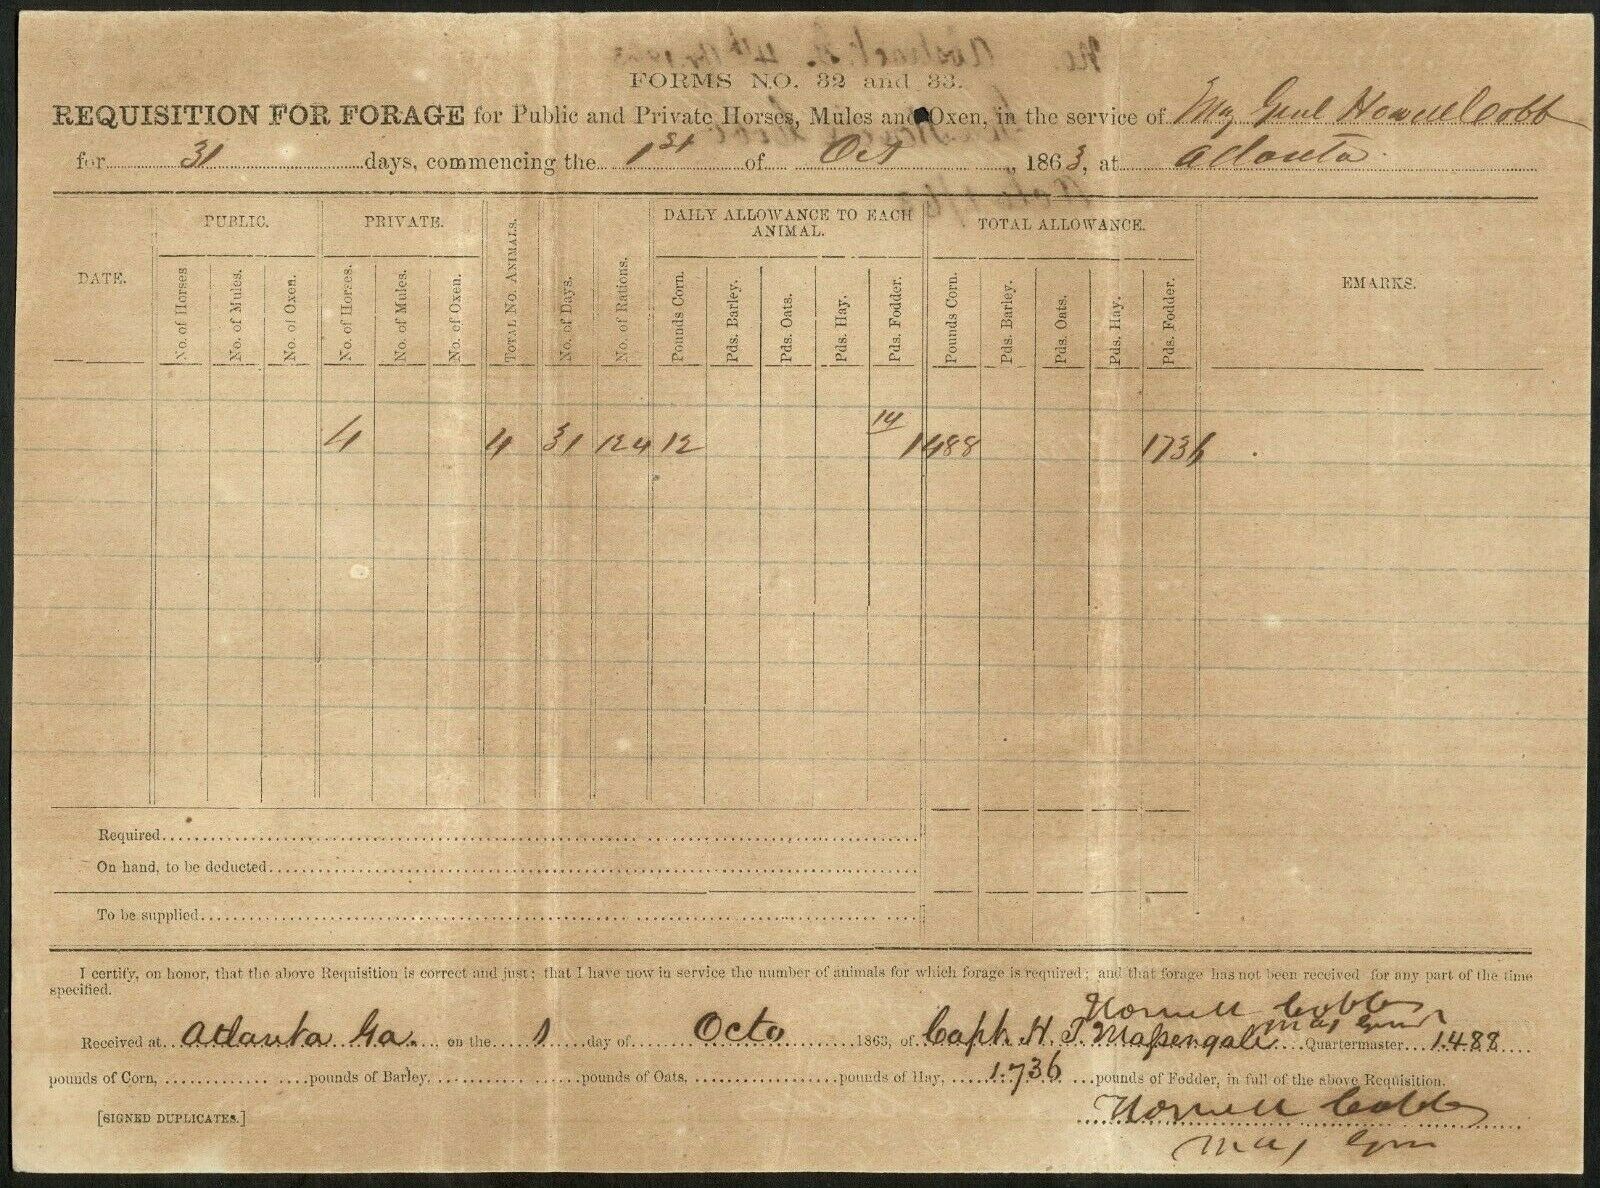 FORMS NO. 32 and 33.
REQUISITION FOR FORAGE for Public and Private Horses, Mules and Oxen, in the service of Maj Genl Howell Cobb
for 31 days, commencing the 1st of Oct, 1863, at Atlanta.
DATE. PUBLIC. PRIVATE. TOTAL NO. ANIMALS. No. of Days. No. of Rations. DAILY ALLOWANCE TO EACH ANIMAL. TOTAL ALLOWANCE. EMARKS.
No. of Horses No. of Mules. No. of Oxen. No. of Horses. No. of Mules. No. of Oxen. Pounds Corn. Pds. Barley. Pds. Oats. Pds. Hay. Pds. Fodder. Pounds Corn. Pds. Barley. Pds. Oats. Pds. Hay. Pds. Fodder.
4 4 31 124 12 14 1488 1736
Required
On hand, to be deducted
To be supplied
I certify, on honor, that the above Requisition is correct and just; that I have now in service the number of animals for which forage is required; and that forage has not been received for any part of the time
specified.
Howell Cobb
Maj Genl
Received at Atlanta Ga. on the 1 day of Octo 1863, of Capt. H. T. Massengale Quartermaster 1488
pounds of Corn, pounds of Barley, pounds of Oats, pounds of Hay, 1736 pounds of Fodder, in full of the above Requisition.
[SIGNED DUPLICATES.]
Howell Cobb
Maj Genl